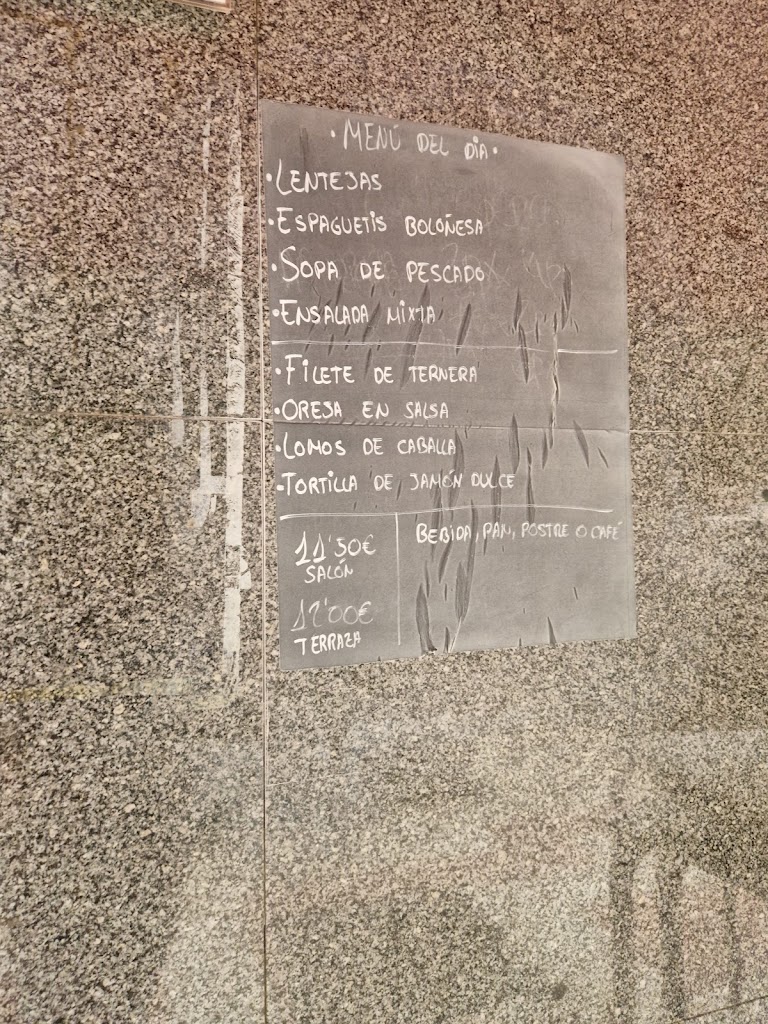 · MENÚ DEL DÍA ·
· LENTEJAS
· ESPAGUETIS BOLOÑESA
· SOPA DE PESCADO
· ENSALADA MIXTA
· FILETE DE TERNERA
· ORESA EN SALSA
· LOMOS DE CABALLA
· TORTILLA DE JAMÓN DULCE
11'50€
SALÓN
BEBIDA, PAN, POSTRE O CAFÉ
12'00€
TERRAZA